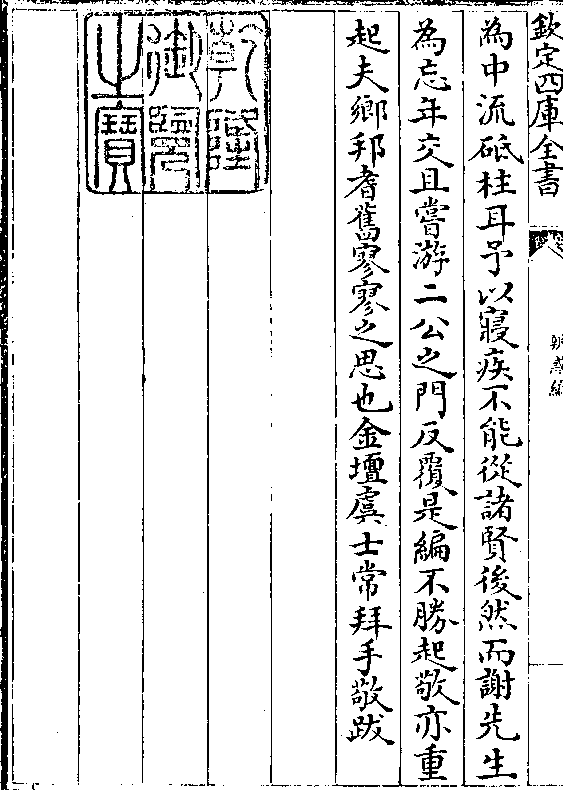 欽定四庫全書
辨惑編
為中流砥柱耳予以寢疾不能從諸賢後然而謝先生
為忘年交且嘗游二公之門反覆是編不勝起敬亦重
起夫鄉邦耆舊寥寥之思也金壇虞士常拜手敬跋
乾隆
御覽
之寶